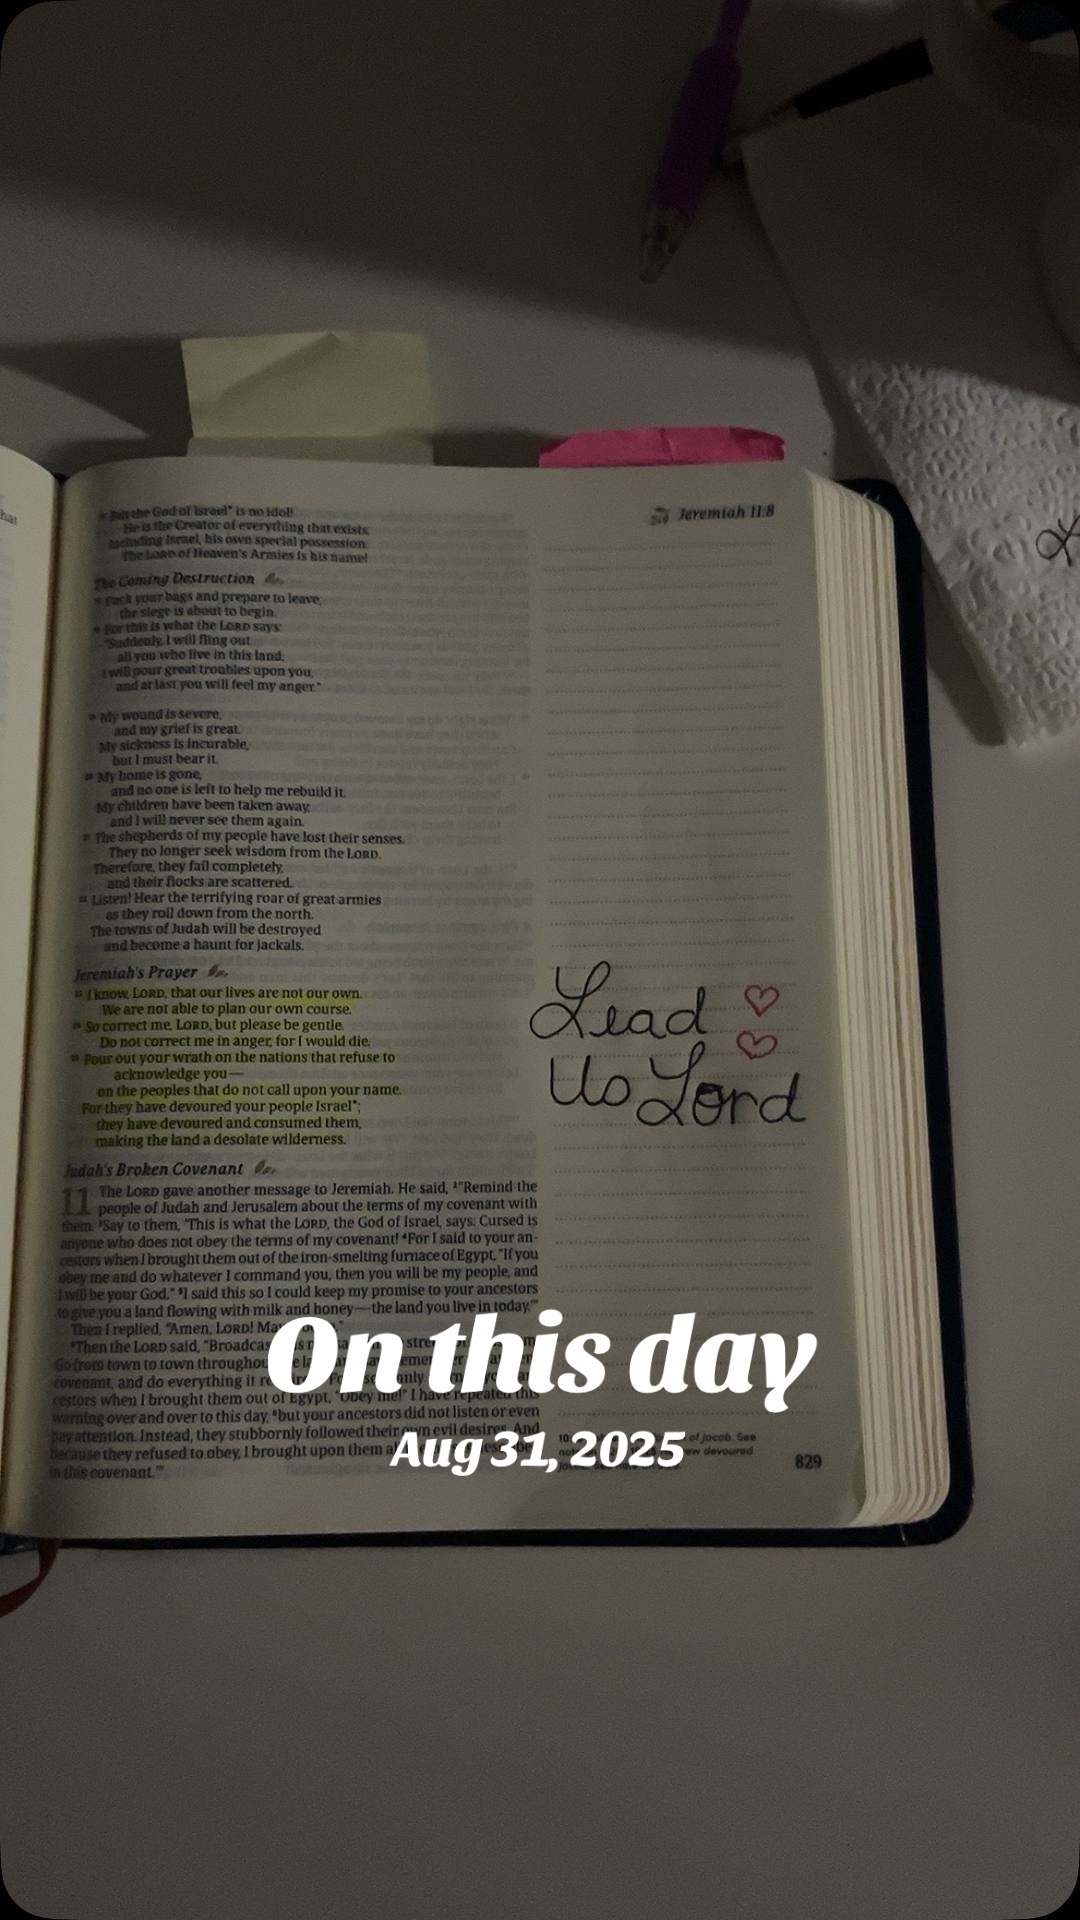 hat
But the God of Israel* is no idol!
He is the Creator of everything that exists,
including Israel, his own special possession.
The LORD of Heaven's Armies is his name!
The Coming Destruction
Pack your bags and prepare to leave;
the siege is about to begin.
For this is what the LORD says:
"Suddenly, I will fling out
all you who live in this land.
I will pour great troubles upon you,
and at last you will feel my anger."
My wound is severe,
and my grief is great.
My sickness is incurable,
but I must bear it.
My home is gone,
and no one is left to help me rebuild it.
My children have been taken away,
and I will never see them again.
The shepherds of my people have lost their senses.
They no longer seek wisdom from the LORD.
Therefore, they fail completely,
and their flocks are scattered.
Listen! Hear the terrifying roar of great armies
as they roll down from the north.
The towns of Judah will be destroyed
and become a haunt for jackals.
Jeremiah's Prayer
I know, LORD, that our lives are not our own.
We are not able to plan our own course.
So correct me, LORD, but please be gentle.
Do not correct me in anger, for I would die.
Pour out your wrath on the nations that refuse to
acknowledge you—
on the peoples that do not call upon your name.
For they have devoured your people Israel*;
they have devoured and consumed them,
making the land a desolate wilderness.
Judah's Broken Covenant
11 The LORD gave another message to Jeremiah. He said, 2"Remind the
people of Judah and Jerusalem about the terms of my covenant with
them. 3Say to them, 'This is what the LORD, the God of Israel, says: Cursed is
anyone who does not obey the terms of my covenant! 4For I said to your an-
cestors when I brought them out of the iron-smelting furnace of Egypt, "If you
obey me and do whatever I command you, then you will be my people, and
I will be your God." 5I said this so I could keep my promise to your ancestors
to give you a land flowing with milk and honey—the land you live in today.'"
Then I replied, "Amen, LORD!
6Then the LORD said, "Broadcast
Go from town to town throughout
covenant, and do everything it
cestors when I brought them out of Egypt, "Obey me!" I have repeated this
warning over and over to this day, 8but your ancestors did not listen or even
pay attention. Instead, they stubbornly followed their own evil desires. And
because they refused to obey, I brought upon them
in this covenant.'"
Jeremiah 11:8
Lead
Us Lord
of Jacob. See
devoured
829
On this day
Aug 31, 2025